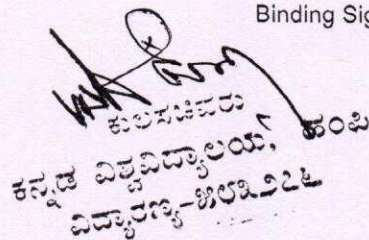 Binding Sig
ಕುಲಸಚಿವರು
ಕನ್ನಡ ವಿಶ್ವವಿದ್ಯಾಲಯ, ಹಂಪಿ
ವಿದ್ಯಾರಣ್ಯ-೫೮೩೨೭೬